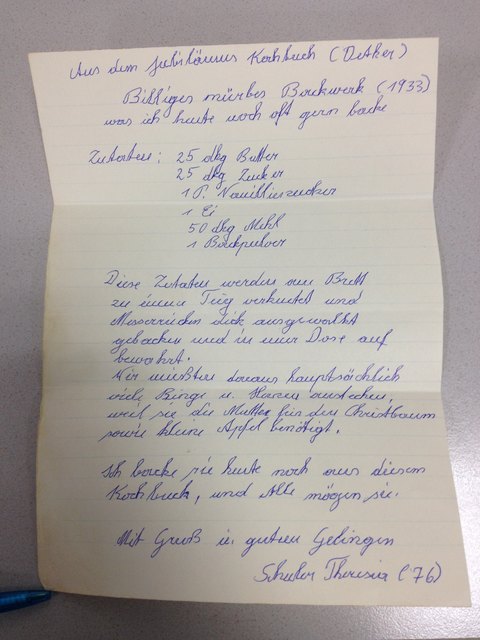 Aus dem Jubiläums Kochbuch (Oetker)
Billiges mürbes Backwerk (1933)
was ich heute noch oft gern backe
Zutaten: 25 dkg Butter
25 dkg Zucker
1 P. Vanillezucker
1 Ei
50 dkg Mehl
1 Backpulver
Diese Zutaten werden am Brett
zu einem Teig verknetet und
Messerrücken dick ausgewalkt
gebacken und in einer Dose auf
bewahrt.
Wir mußten daraus hauptsächlich
viele Ringe u. Herzen ausstechen,
weil sie die Mutter für den Christbaum
sowie kleine Äpfel benötigt.
Ich backe sie heute noch aus diesem
Kochbuch, und Alle mögen sie.
Mit Gruß u. guten Gelingen
Theresia (76)